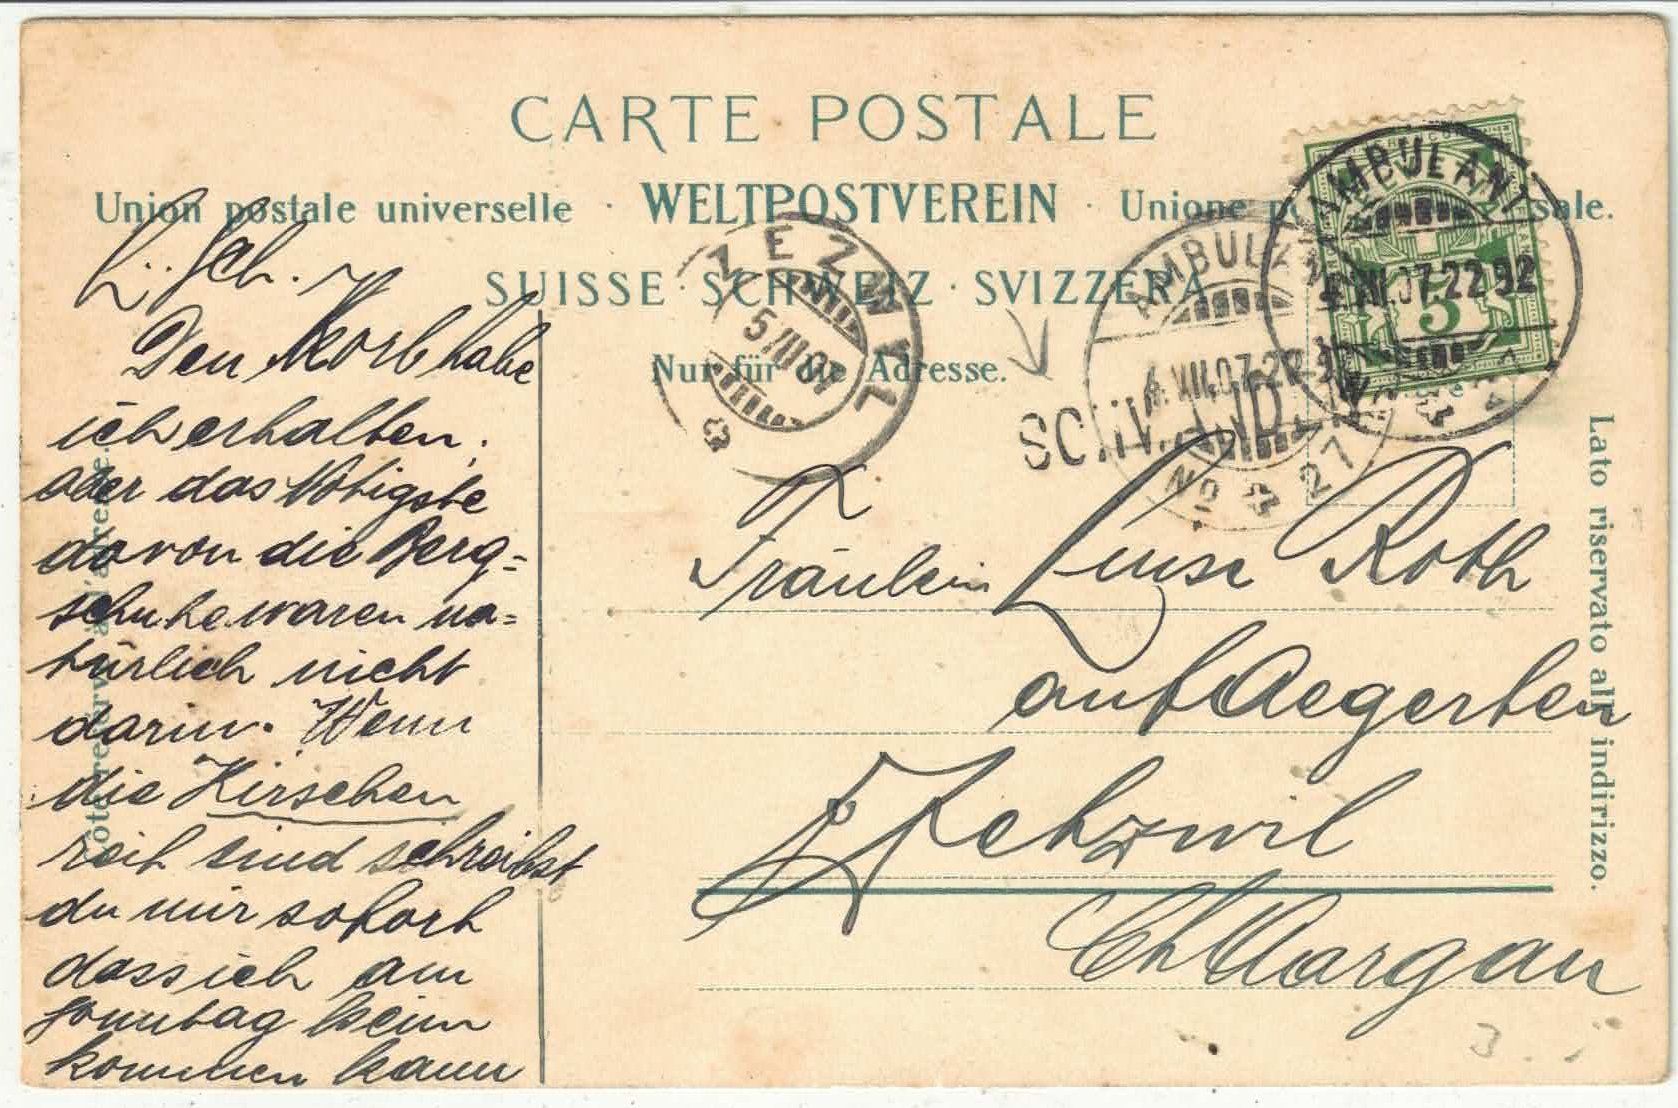 CARTE POSTALE
Union postale universelle · WELTPOSTVEREIN · Unione sale.
SUISSE · SCHWEIZ · SVIZZERA
Nur für die Adresse.
Côté réservé à l'adresse.
Lato riservato all' indirizzo.
ZEZWYL
5 VII 07
AMBULANT
4.VII.07.22
No 21
AMBULANT
VII.07.22 92
5
L. Sch.
Den Korb habe
ich erhalten,
aber das Nötigste
davon die Berg=
schuhe waren na=
türlich nicht
darin. Wenn
die Kirschen
reif sind schreibst
du mir sofort
dass ich am
Sonntag heim
kommen kann
Fräulein Luise Roth
auf Aegerten
Zetzwil
Ct Aargau
3